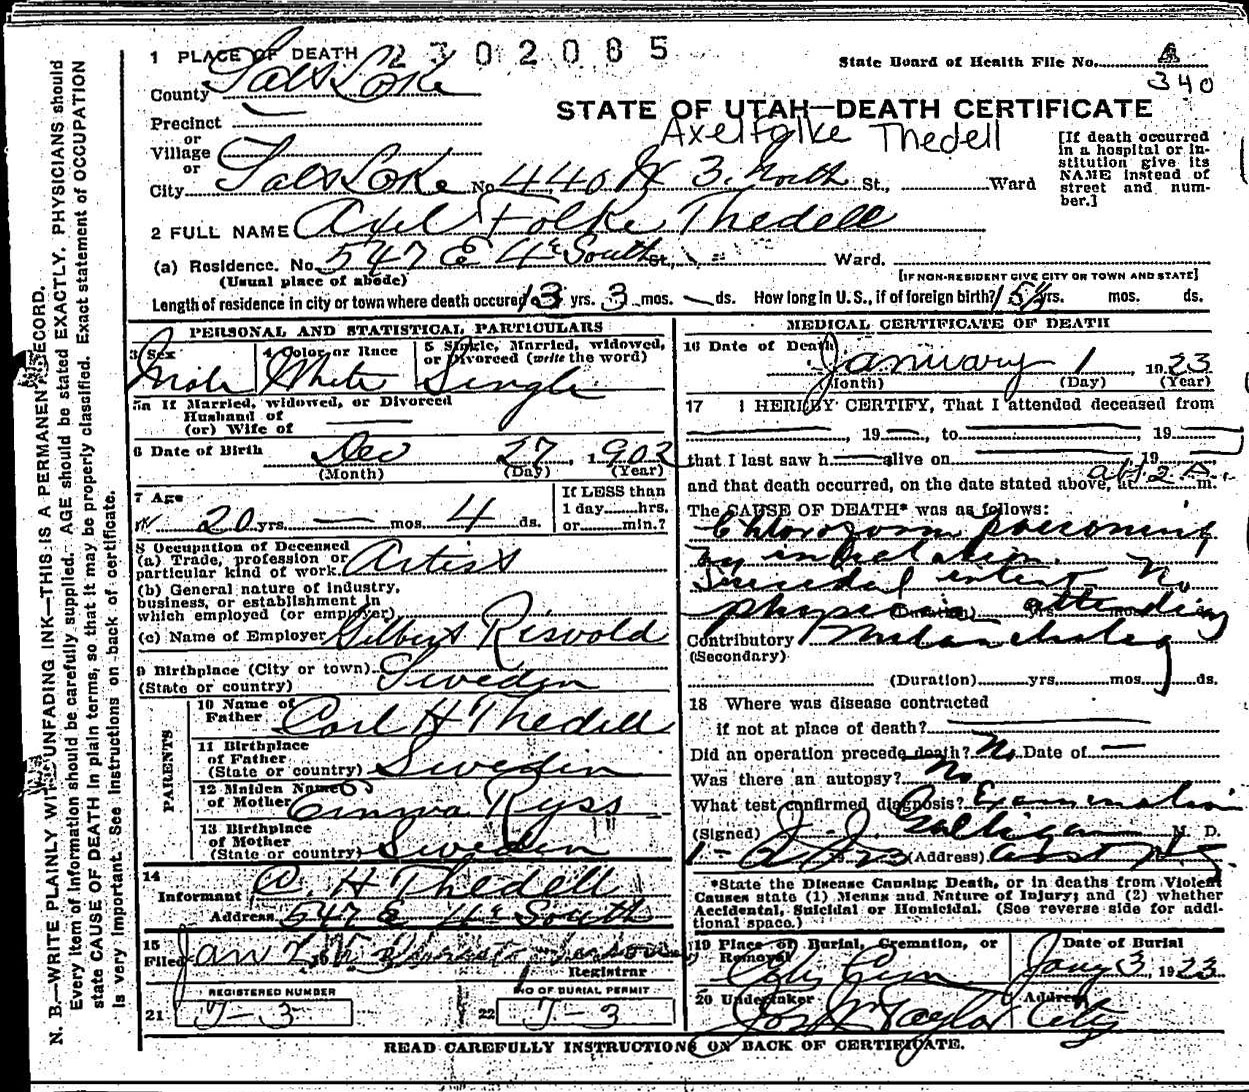 1 PLACE OF DEATH 2302085
State Board of Health File No.
340
County Salt Lake
STATE OF UTAH—DEATH CERTIFICATE
Axel Folke Thedell
Precinct
or
Village
or
City Salt Lake No 440 W 3. North St., Ward
[If death occurred
in a hospital or in-
stitution give its
NAME instead of
street and num-
ber.]
2 FULL NAME Axel Folke Thedell
(a) Residence. No. 547 E 4th South St., Ward.
(Usual place of abode)
[IF NON-RESIDENT GIVE CITY OR TOWN AND STATE]
Length of residence in city or town where death occured 13 yrs. 3 mos. ds. How long in U.S., if of foreign birth? 15½ yrs. mos. ds.
PERSONAL AND STATISTICAL PARTICULARS
3 Sex
Male
4 Color or Race
White
5 Single, Married, widowed,
or Divorced (write the word)
Single
5a If Married, widowed, or Divorced
Husband of
(or) Wife of
6 Date of Birth Dec 27, 1902
(Month) (Day) (Year)
7 Age
20 yrs. — mos. 4 ds.
If LESS than
1 day hrs.
or min.?
8 Occupation of Deceased
(a) Trade, profession or
particular kind of work. Artist
(b) General nature of industry,
business, or establishment in
which employed (or employer)
(c) Name of Employer Gilbert Risvold
9 Birthplace (City or town)
(State or country) Sweden
PARENTS
10 Name of
Father Carl H Thedell
11 Birthplace
of Father
(State or country) Sweden
12 Maiden Name
of Mother Emma Ryss
13 Birthplace
of Mother
(State or country) Sweden
14
Informant C. H Thedell
Address 547 E 4th South
15
Filed Jan 2,
Registrar
REGISTERED NUMBER
21 J-3
NO OF BURIAL PERMIT
22 J-3
MEDICAL CERTIFICATE OF DEATH
16 Date of Death
January 1, 1923
(Month) (Day) (Year)
17 I HEREBY CERTIFY, That I attended deceased from
, 19 , to , 19
that I last saw h alive on 19
and that death occurred, on the date stated above, at abt 2 A. m.
The CAUSE OF DEATH* was as follows:
Chloroform poisoning
by inhalation.
Suicidal intent No
physician attending
(Duration) yrs. mos. ds.
Contributory Melancholey
(Secondary)
(Duration) yrs. mos. ds.
18 Where was disease contracted
if not at place of death?
Did an operation precede death? No. Date of —
Was there an autopsy? No
What test confirmed diagnosis? Examination
(Signed) J. J. Galligan M. D.
1-2 1923 (Address)
*State the Disease Causing Death, or in deaths from Violent
Causes state (1) Means and Nature of Injury; and (2) whether
Accidental, Suicidal or Homicidal. (See reverse side for addi-
tional space.)
19 Place of Burial, Cremation, or
Removal
City Cem
Date of Burial
Jany 3, 1923
20 Undertaker
Jos Wm Taylor
Address
City
READ CAREFULLY INSTRUCTIONS ON BACK OF CERTIFICATE.
N. B.—WRITE PLAINLY WITH UNFADING INK—THIS IS A PERMANENT RECORD.
Every item of information should be carefully supplied. AGE should be stated EXACTLY. PHYSICIANS should
state CAUSE OF DEATH in plain terms, so that it may be properly classified. Exact statement of OCCUPATION
is very important. See Instructions on back of certificate.